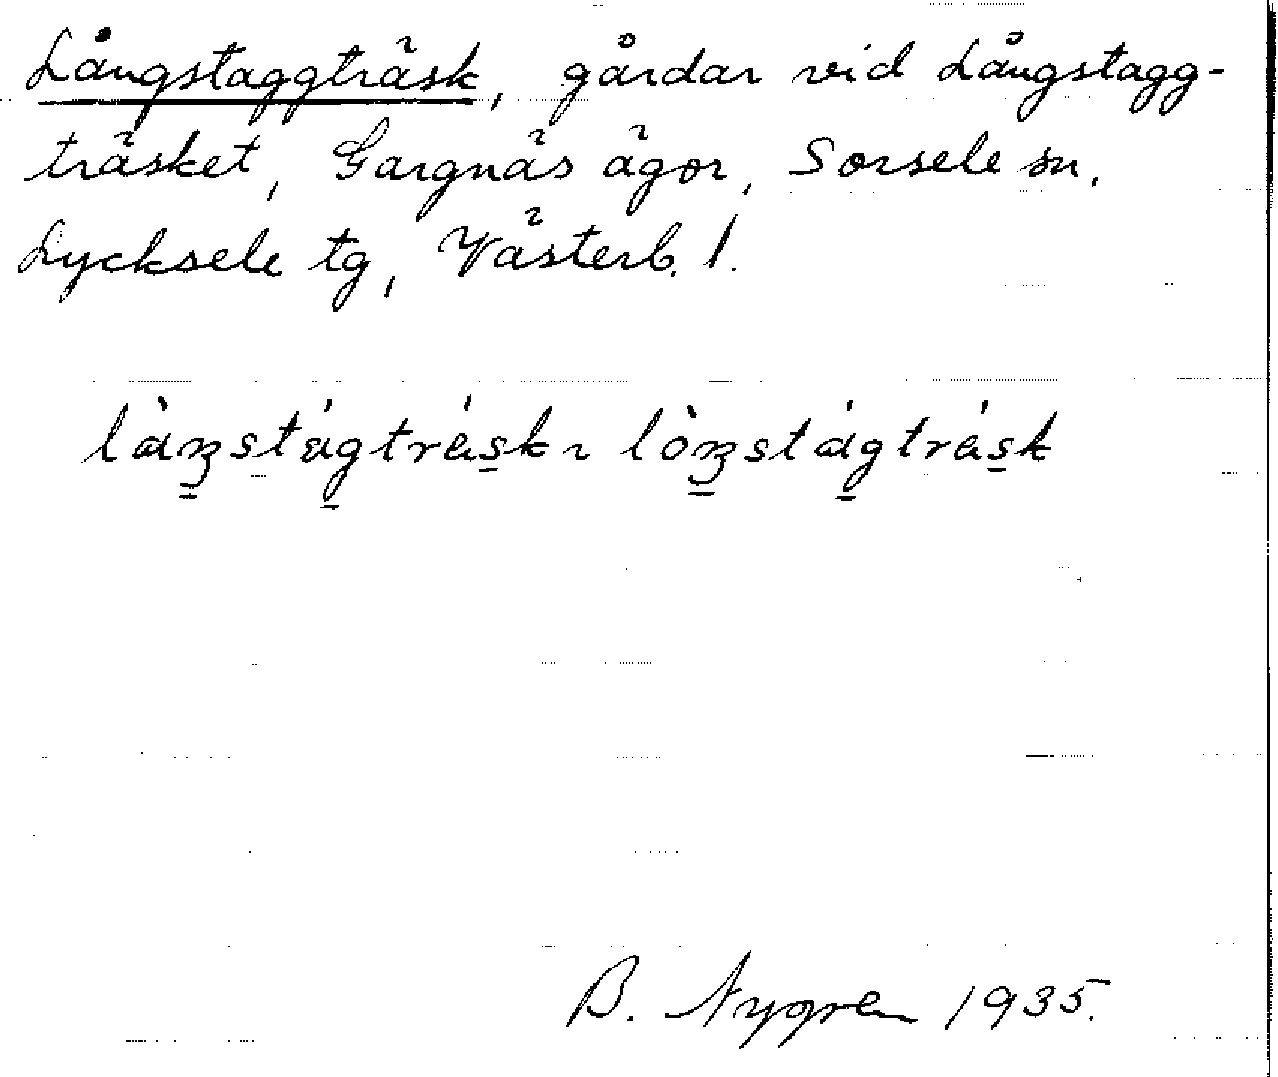 Långstaggträsk, gårdar vid Långstagg-
träsket, Gargnäs ägor, Sorsele sn,
Lycksele tg, Västerb. l.
B. Nygren 1935.